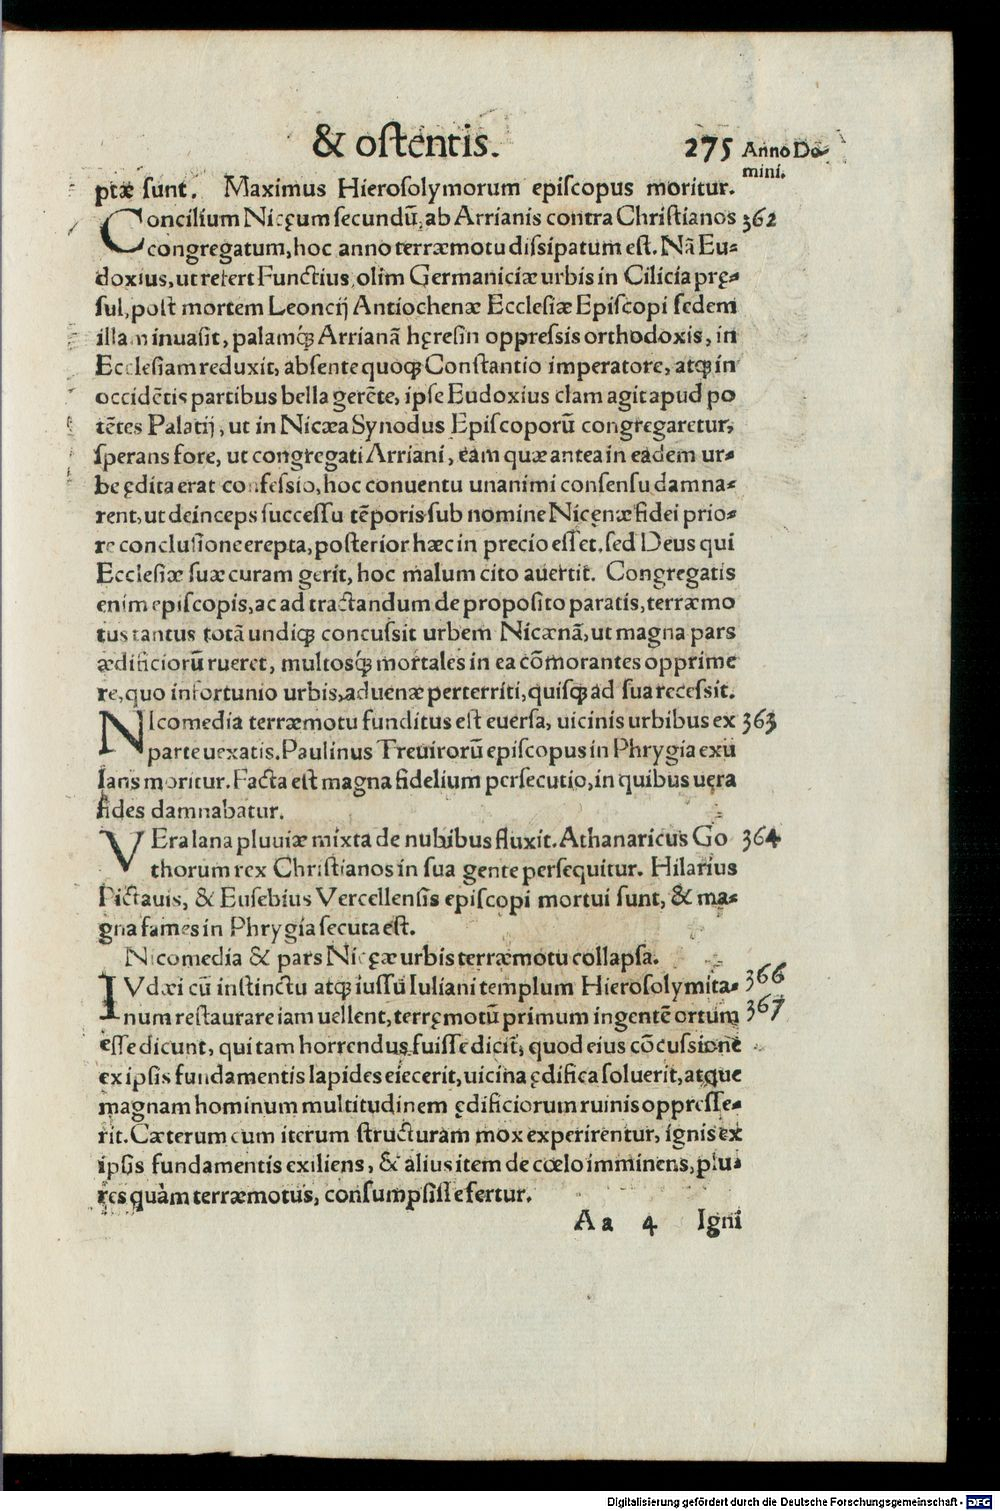 & oſtentis. 275 Anno Do-
mini.
ptæ sunt. Maximus Hieroſolymorum epiſcopus moritur.
Concilium Nicęum ſecundū, ab Arrianis contra Chriſtianos 362
congregatum, hoc anno terræmotu diſsipatum eſt. Nā Eu-
doxius, ut refert Functius, olim Germaniciæ urbis in Cilicia pręe-
ſul, poſt mortem Leoncij Antiochenæ Eccleſiæ Epiſcopi ſedem
illam inuaſit, palamq́ꝫ Arrianā hęreſin oppreſsis orthodoxis, in
Eccleſiam reduxit, abſente quoqꝫ Conſtantio imperatore, atqꝫ in
occidētis partibus bella gerēte, ipſe Eudoxius clam agit apud po
tētes Palatij, ut in Nicæa Synodus Epiſcoporū congregaretur,
ſperans fore, ut congregati Arriani, eam quæ antea in eadem ur-
be ędita erat confeſsio, hoc conuentu unanimi conſenſu damna-
rent, ut deinceps ſucceſſu tēporis ſub nomine Nicęnæ fidei prio-
re concluſione erepta, poſterior hæc in precio eſſet. ſed Deus qui
Eccleſiæ ſuæ curam gerit, hoc malum cito auertit. Congregatis
enim epiſcopis, ac ad tractandum de propoſito paratis, terræmo
tus tantus totā undiqꝫ concuſsit urbem Nicænā, ut magna pars
ædificiorū rueret, multosq́ꝫ mortales in ea cōmorantes opprime
re, quo infortunio urbis, aduenæ perterriti, quiſqꝫ ad ſua receſsit.
NIcomedia terræmotu funditus eſt euerſa, uicinis urbibus ex 363
parte uexatis. Paulinus Treuirorū epiſcopus in Phrygia exu
lans moritur. Facta eſt magna fidelium perſecutio, in quibus uęra
fides damnabatur.
VEra lana pluuiæ mixta de nubibus fluxit. Athanaricus Go 364
thorum rex Chriſtianos in ſua gente perſequitur. Hilarius
Pictauis, & Euſebius Vercellenſis epiſcopi mortui ſunt, & ma-
gna fames in Phrygia ſecuta eſt.
Nicomedia & pars Nicęæ urbis terræmotu collapſa.
IVdæi cū inſtinctu atqꝫ iuſſu Iuliani templum Hieroſolymita- 366
num reſtaurare iam uellent, terręmotū primum ingentē ortum 367
eſſe dicunt, qui tam horrendus fuiſſe dicit̃, quod eius cōcuſsione
ex ipſis fundamentis lapides eiecerit, uicina ędifica ſoluerit, atque
magnam hominum multitudinem ędificiorum ruinis oppreſſe-
rit. Cæterum cum iterum ſtructuram mox experirentur, ignis ex
ipſis fundamentis exiliens, & alius item de cœlo imminens, plu-
res quàm terræmotus, conſumpſiſſe fertur.
Aa 4 Igni
Digitalisierung gefördert durch die Deutsche Forschungsgemeinschaft - DFG